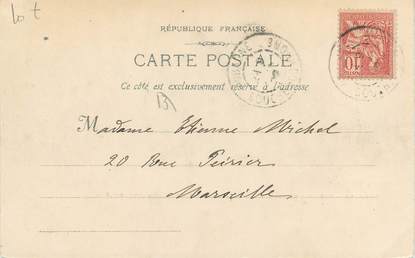 lot
RÉPUBLIQUE FRANÇAISE
CARTE POSTALE
Ce côté est exclusivement réservé à l'adresse
13
Madame Etienne Michel
20 Rue Périer
Marseille
10